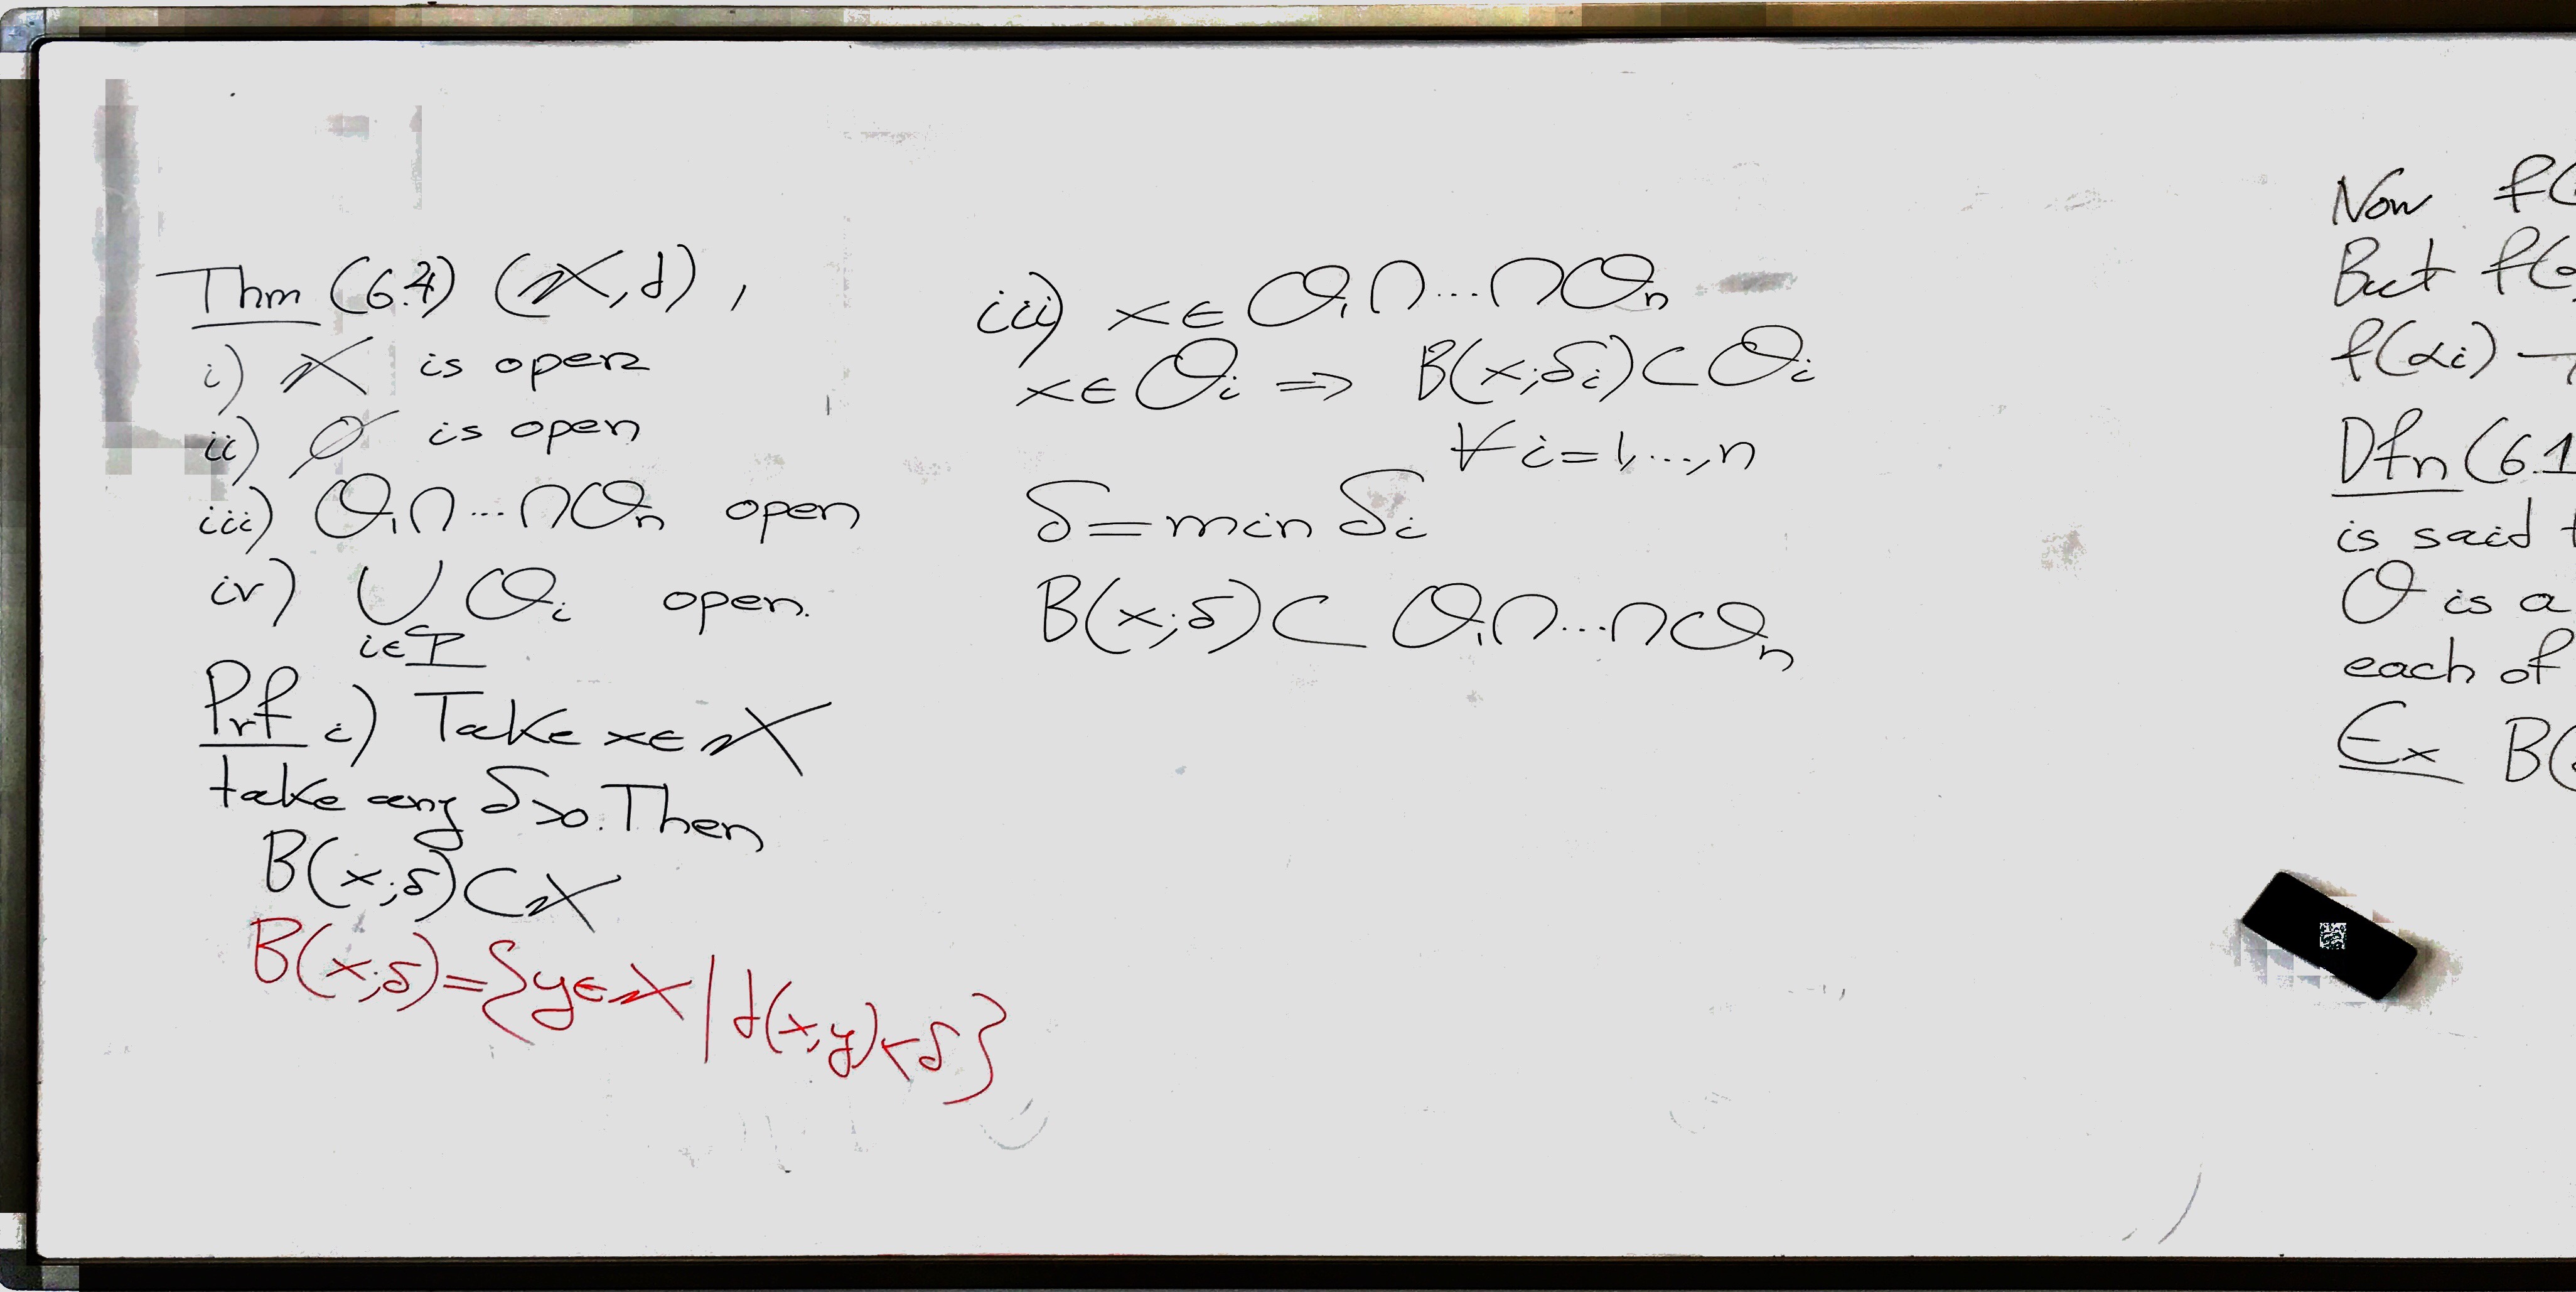 Thm (6.4) (X, d),
i) X is open
ii) ∅ is open
iii) O₁∩...∩Oₙ open
iv) ⋃ Oᵢ open.
i∈I
Prf i) Take x∈X
take any δ>0. Then
B(x;δ)⊂X
B(x;δ)={y∈X | d(x,y)<δ}
iii) x∈O₁∩...∩Oₙ
x∈Oᵢ ⇒ B(x;δᵢ)⊂Oᵢ
∀i=1,...,n
δ=min δᵢ
B(x;δ)⊂O₁∩...∩Oₙ
Now f(
But f(
f(αi) –
Dfn (6.1
is said t
O is a
each of
Ex B(